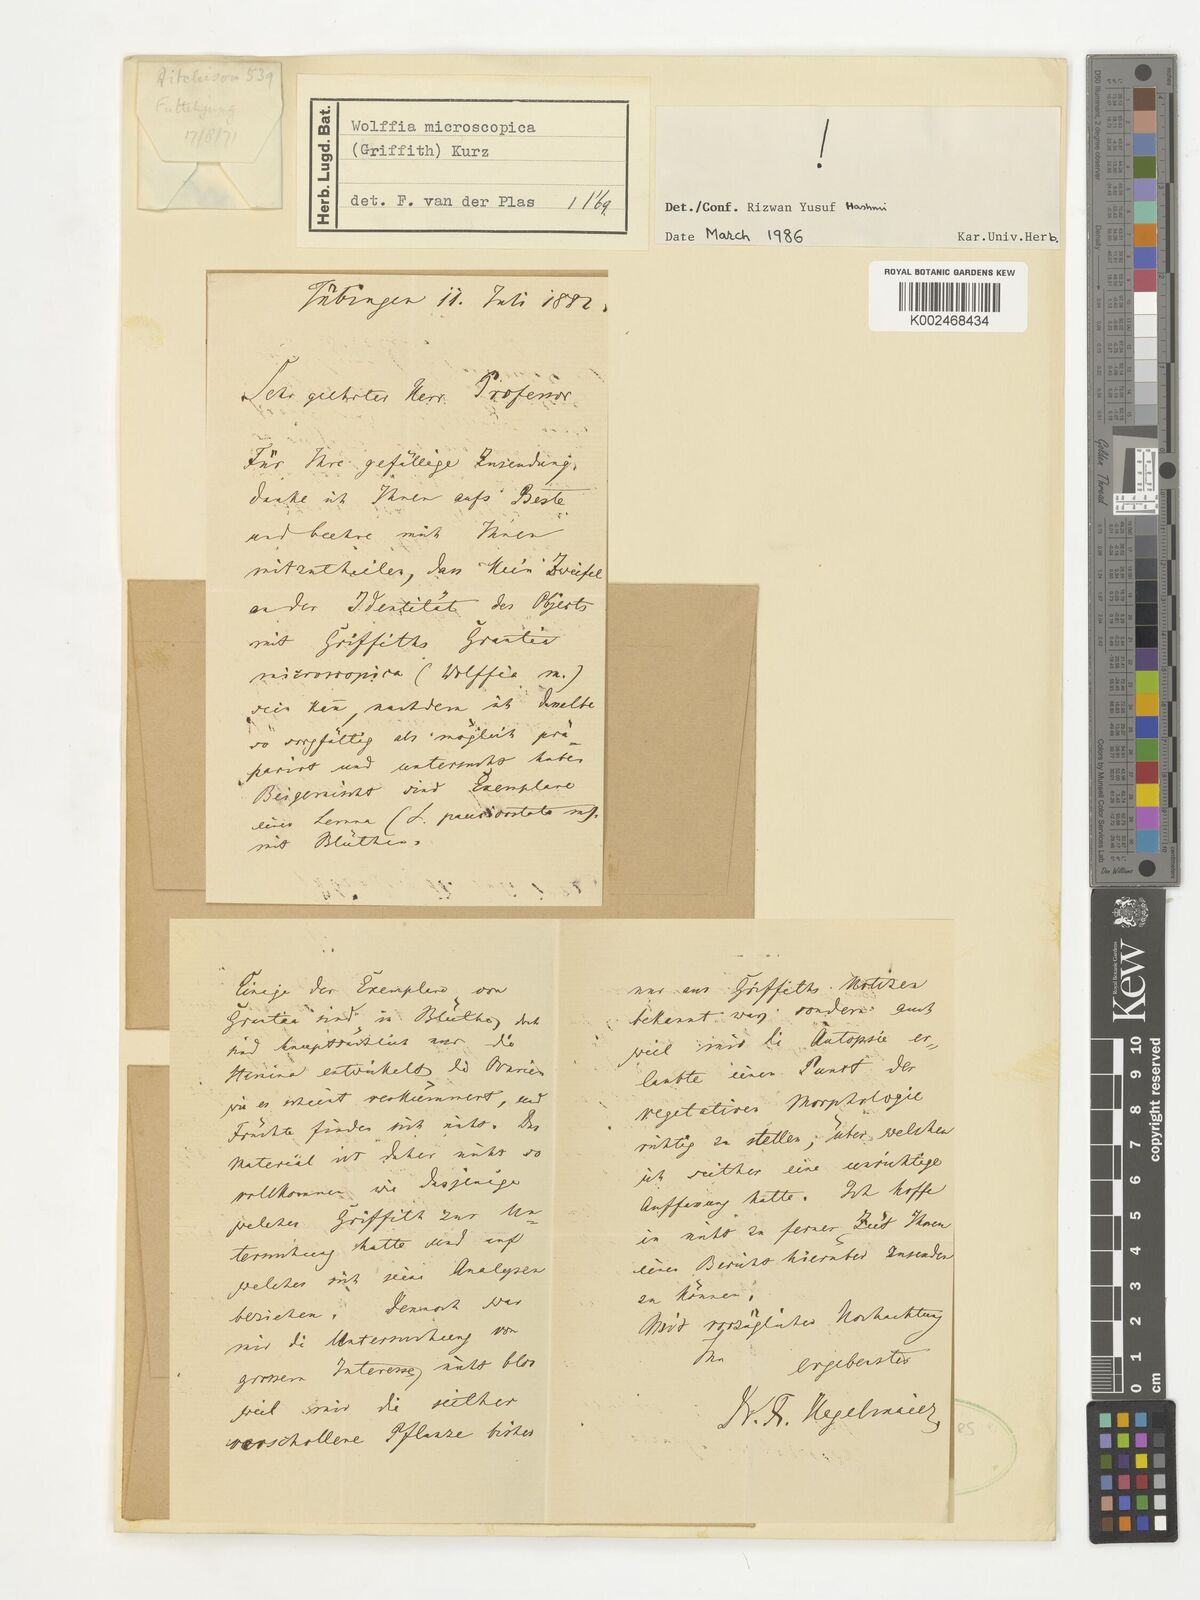 Aitchison 539
Futtehjung
17/8/71
Herb. Lugd. Bat.
Wolffia microscopica
(Griffith) Kurz
det. F. van der Plas
!
Det./Conf. Rizwan Yusuf Hashmi
Date March 1986 Kar.Univ.Herb.
ROYAL BOTANIC GARDENS KEW
K002468434
Tübingen 11. Juli 1882.
Sehr geehrter Herr Professor
Für Ihre gefällige Zusendung
danke ich Ihnen aufs Beste
und beehre mich Ihnen
mitzutheilen, dass kein Zweifel
an der Identität des Objects
mit Griffiths Grantia
microscopica (Wolffia m.)
sein kan, nachdem ich dasselbe
so sorgfältig als möglich prä-
parirt und untersucht habe.
Beigemischt sind Exemplare
einer Lemna (L. paucicostata m.)
mit Blüthen.
Einige der Exemplare von
Grantia sind in Blüthe, doch
sind hauptsächlich nur die
Stamina entwickelt, die Ovarien
wie es scheint verkümmert, und
Früchte finden sich nicht. Das
Material ist daher nicht so
vollkommen wie dasjenige
welches Griffith zur Un-
tersuchung hatte und auf
welches sich seine Analysen
beziehen. Dennoch war
mir die Untersuchung von
grossem Interesse, nicht blos
weil mir die seither
verschollene Pflanze bisher
nur aus Griffiths Notizen
bekannt war, sondern auch
weil mir die Autopsie er-
laubte einen Punct der
vegetativen Morphologie
richtig zu stellen, über welchen
ich seither eine unrichtige
Auffassung hatte. Ich hoffe
in nicht zu ferner Zeit Ihnen
einen Bericht hierüber zusenden
zu können.
Mit vorzüglicher Hochachtung
Ihr ergebenster
Dr. F. Hegelmaier
Golden Thread
Colors by Munsell Color Services Lab
Don Williams
Royal Botanic Gardens
Kew
0 1 2 3 4 5 6 7 8 9 10
cm
copyright reserved